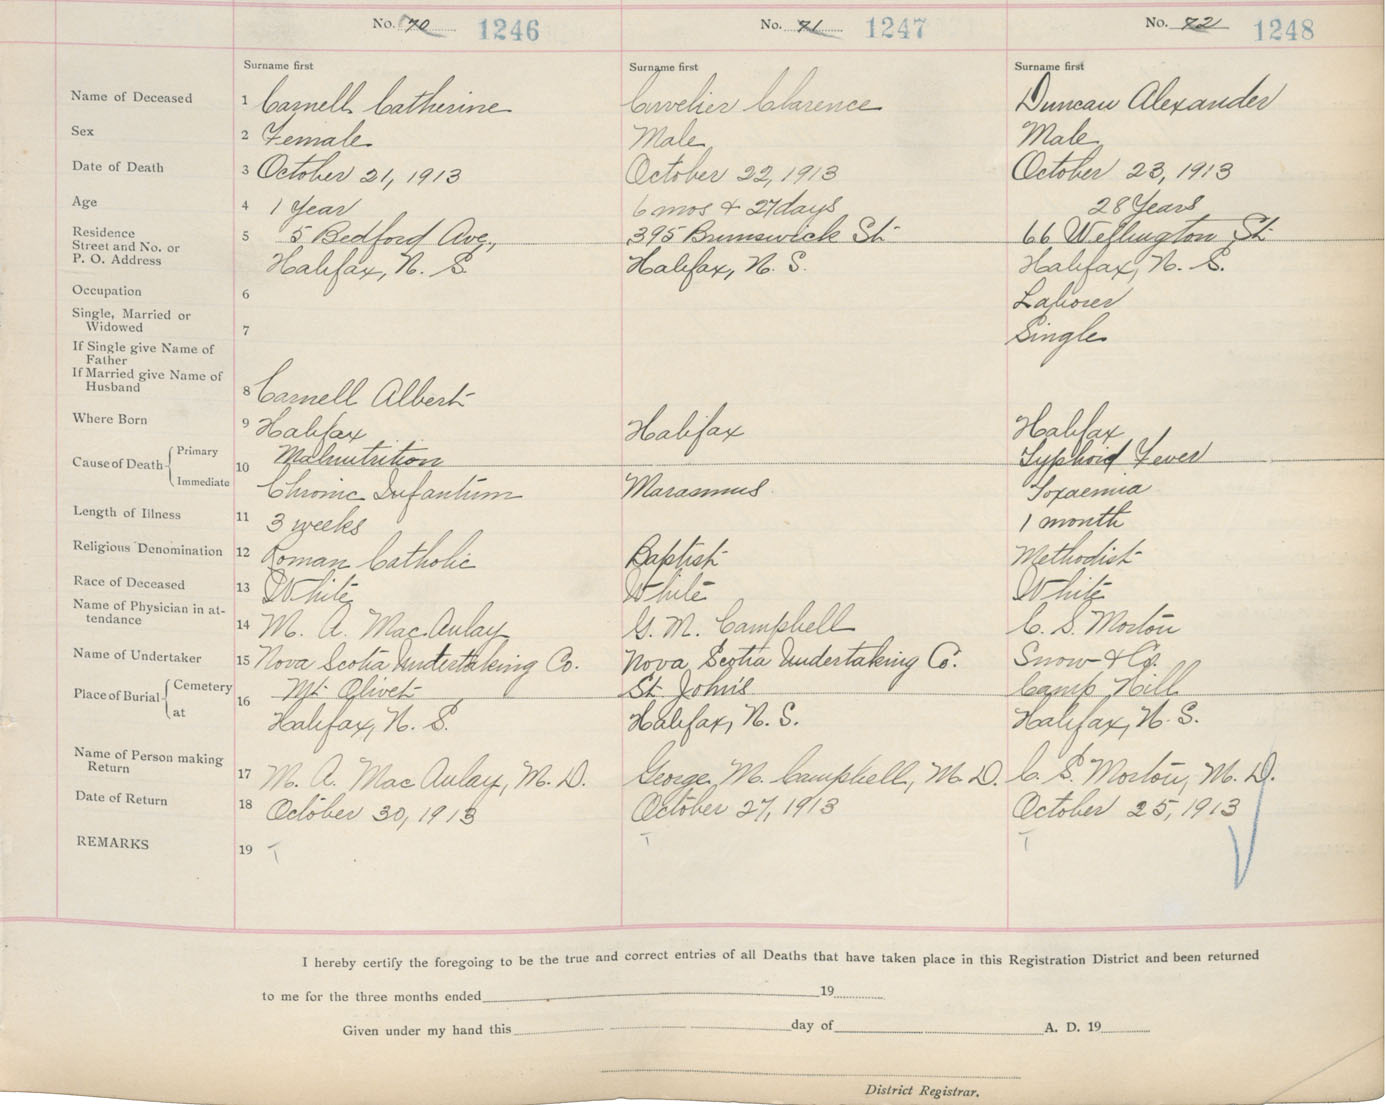 No. 70 1246 No. 71 1247 No. 72 1248
Surname first Surname first Surname first
Name of Deceased 1 Carnell Catherine Cuvelier Clarence Duncan Alexander
Sex 2 Female Male Male
Date of Death 3 October 21, 1913 October 22, 1913 October 23, 1913
Age 4 1 Year 6 mos & 27 days 28 Years
Residence
Street and No. or 5 5 Bedford Ave., 395 Brunswick St. 66 Wellington St.
P. O. Address Halifax, N. S. Halifax, N. S. Halifax, N. S.
Occupation 6 Laborer
Single, Married or
Widowed 7 Single
If Single give Name of
Father
If Married give Name of
Husband 8 Carnell Albert
Where Born 9 Halifax Halifax Halifax
Cause of Death Primary 10 Malnutrition Typhoid Fever
Immediate Chronic Infantum Marasmus Toxaemia
Length of Illness 11 3 weeks 1 month
Religious Denomination 12 Roman Catholic Baptist Methodist
Race of Deceased 13 White White White
Name of Physician in at-
tendance 14 M. A. MacAulay G. M. Campbell C. S. Morton
Name of Undertaker 15 Nova Scotia Undertaking Co. Nova Scotia Undertaking Co. Snow & Co.
Place of Burial Cemetery 16 Mt. Olivet St. John's Camp Hill
at Halifax, N. S. Halifax, N. S. Halifax, N. S.
Name of Person making
Return 17 M. A. MacAulay, M. D. George M. Campbell, M. D. C. S. Morton, M. D.
Date of Return 18 October 30, 1913 October 27, 1913 October 25, 1913
REMARKS 19 T T T
I hereby certify the foregoing to be the true and correct entries of all Deaths that have taken place in this Registration District and been returned
to me for the three months ended 19
Given under my hand this day of A. D. 19
District Registrar.